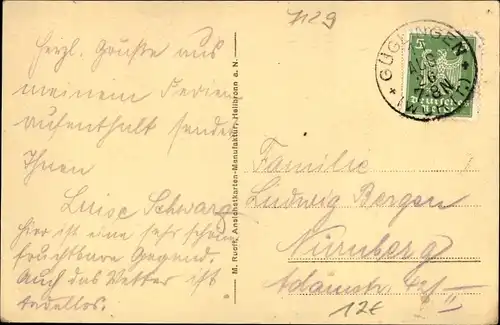 1129
Herzl. Grüße aus
meinem Ferien
aufenthalt sendet
Ihnen
Luise Schwarz
Hier ist eine sehr schöne
fruchtbare Gegend.
Auch das Wetter ist
tadellos.
M. Ruoff, Ansichtskarten-Manufaktur, Heilbronn a. N.
GÜGLINGEN
26
7-8N
5
Deutsches
Reich
Familie
Ludwig Bergen
Nürnberg
Adamstr.
II
12€